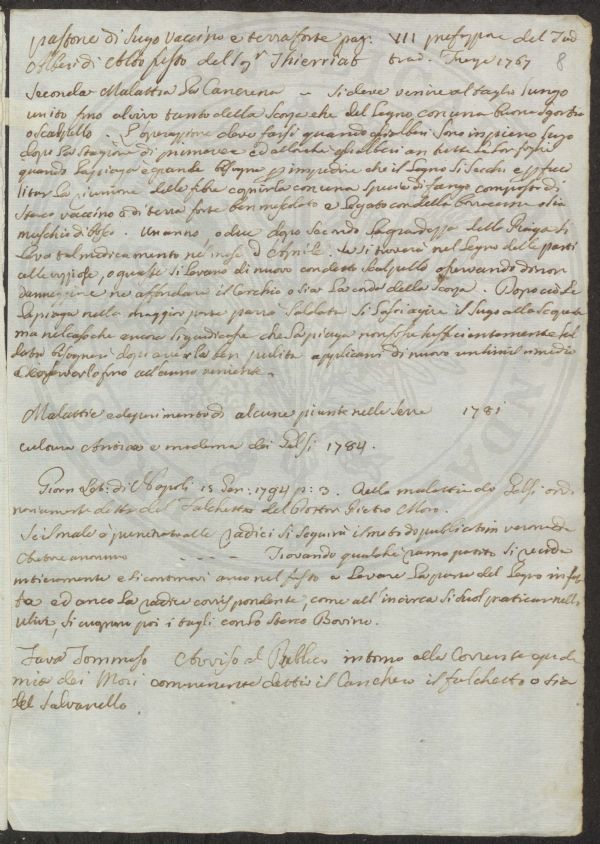 8
pastone di sugo Vaccino e terra forte pag. VII prefazione del
Alberi di Alto fusto del Sig.r Thierriat trad. 1767
Seconda Malattia La Cancrena Si deve venire al taglio lungo
unito fino al vivo tanto della Scorza che del Legno con una buona
o scarpello. L'operazione deve farsi quando gli alberi sono in pieno sugo
dopo la stagione di primavera ed allorche gli alberi an tutte le lor foglie
quando la piaga è grande bisogna p impedire che il Legno si secchi e
litar la riunione delle fibre coprirla con una specie di fango composto di
Sterco vaccino o di terra forte ben mescolato e Legato con della o sia
muschio di bosco. Un anno o due dopo secondo la grandezza della Piaga si
leva tal medicamento nè mesi d'Aprile. Se si trovera nel Legno delle parti
o guaste si levano di nuovo con detto scalpello osservando di non
danneggiare ne affondare il Cerchio o sia La corda della Scorza. Dopo ciò se
la piaga nella maggior parte parrà saldata si lasci agire il sugo
ma nel caso che ancora si giudicasse che la piaga non fosse sufficientemente sal
data bisognerà dopo averla ben pulita applicarvi di nuovo un simil rimedio
e fino all'anno veniente.
Malattie e deperimento di alcune piante nelle Serre 1781
cultura Antica e moderna dei Gelsi 1784.
Giorn Lett: di Napoli 15 Gen: 1794 p: 3. Della malattia de Gelsi ordi
nariamente detta del Falchetto del Dottor Pietro Moro.
Se il male è penetrato alle radici si seguirà il metodo publicato in verona da
Autore anonimo - - - - Trovando qualche ramo patito si recide
interamente e si continovi anco nel fusto a Levare La parte del Legno infet
ta ed anco La radice corrispondente, come all'incirca si suol praticar nelli
ulivi, si cuoprano poi i tagli con lo Sterco Bovino.
Fava Tommaso Avviso al Publico intorno alla Corrente epide
mia dei Mori comunemente detta il Canchero il falchetto o sia
del Salvanello